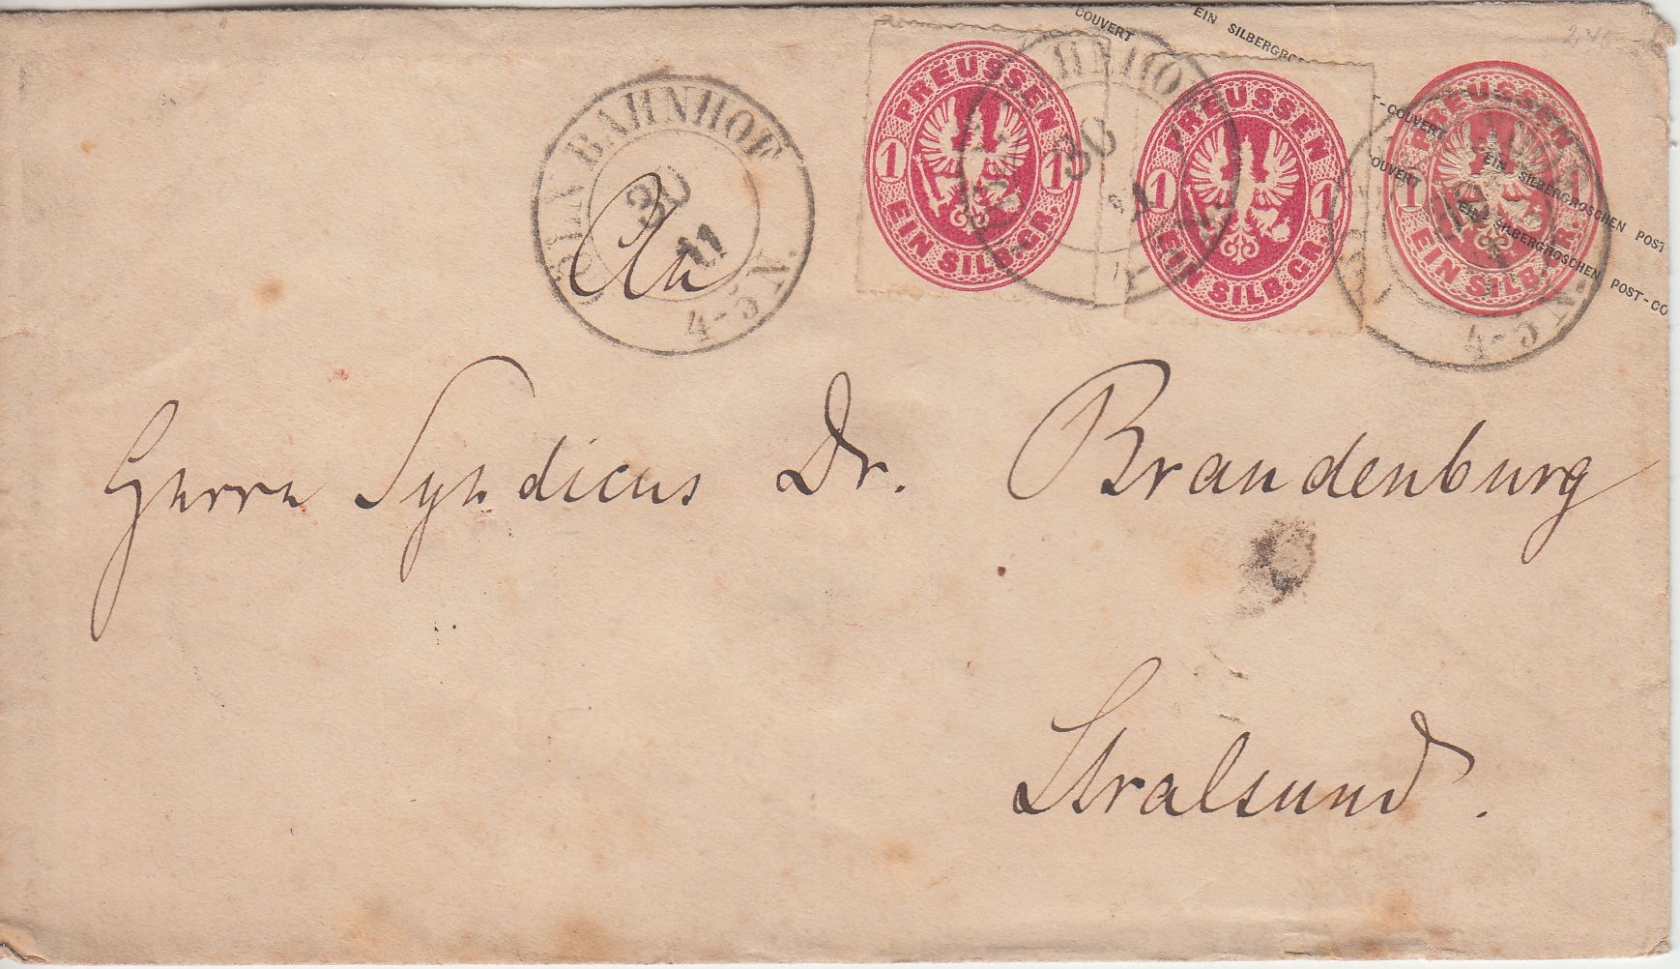 COUVERT
EIN SILBERGRO
PREUSSEN
1 1
EIN SILB. GR.
PREUSSEN
1 1
EIN SILB. GR.
PREUSSEN
1 1
EIN SILB. GR.
T-COUVERT EIN SILBERGROSCHEN POST
OUVERT EIN SILBERGROSCHEN POST-CO
BAHNHOF
30
11
4-5 N.
An
HNHO
30
4-5 N.
Herrn Syndicus Dr. Brandenburg
Stralsund.